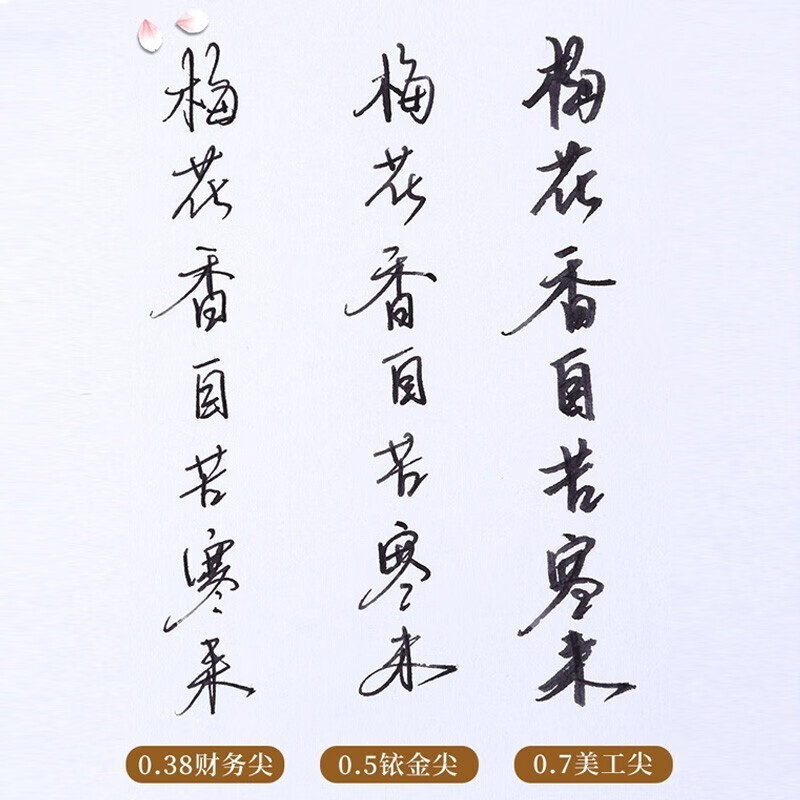 梅花香自苦寒来
梅花香自苦寒来
梅花香自苦寒来
0.38财务尖
0.5铱金尖
0.7美工尖